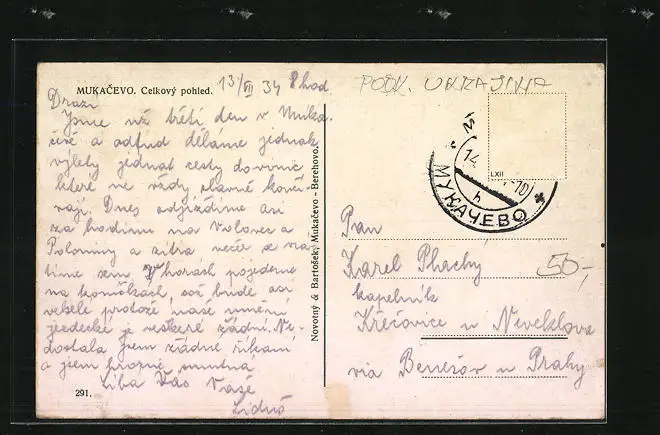 MUKAČEVO. Celkový pohled.
13/VII 34 8 hod.
PODK. UKRAJINA
Drazí
Jsme už třetí den v Muka-
čevě a odtud děláme jednak
výlety jednak cesty do vinic
které ne vždy slavně konči-
vají. Dnes odjíždíme asi
za hodinu na Volovec a
Poloniny a zítra večer se vrá-
tíme sem. V horách pojedeme
na koníčkách, což bude asi
veselé protože naše umění
jezdecké je veškeré žádné. Ne-
dostala jsem žádné říkání
a jsem hrozně smutna.
Líbá Vás Vaše
Liduš
291.
Novotný & Bartošek, Mukačevo - Berehovo.
LXII
14
МУКАЧЕВО
Pan
Karel Plachý
kapelník
50,-
Křečovice u Neveklova
via Benešov u Prahy